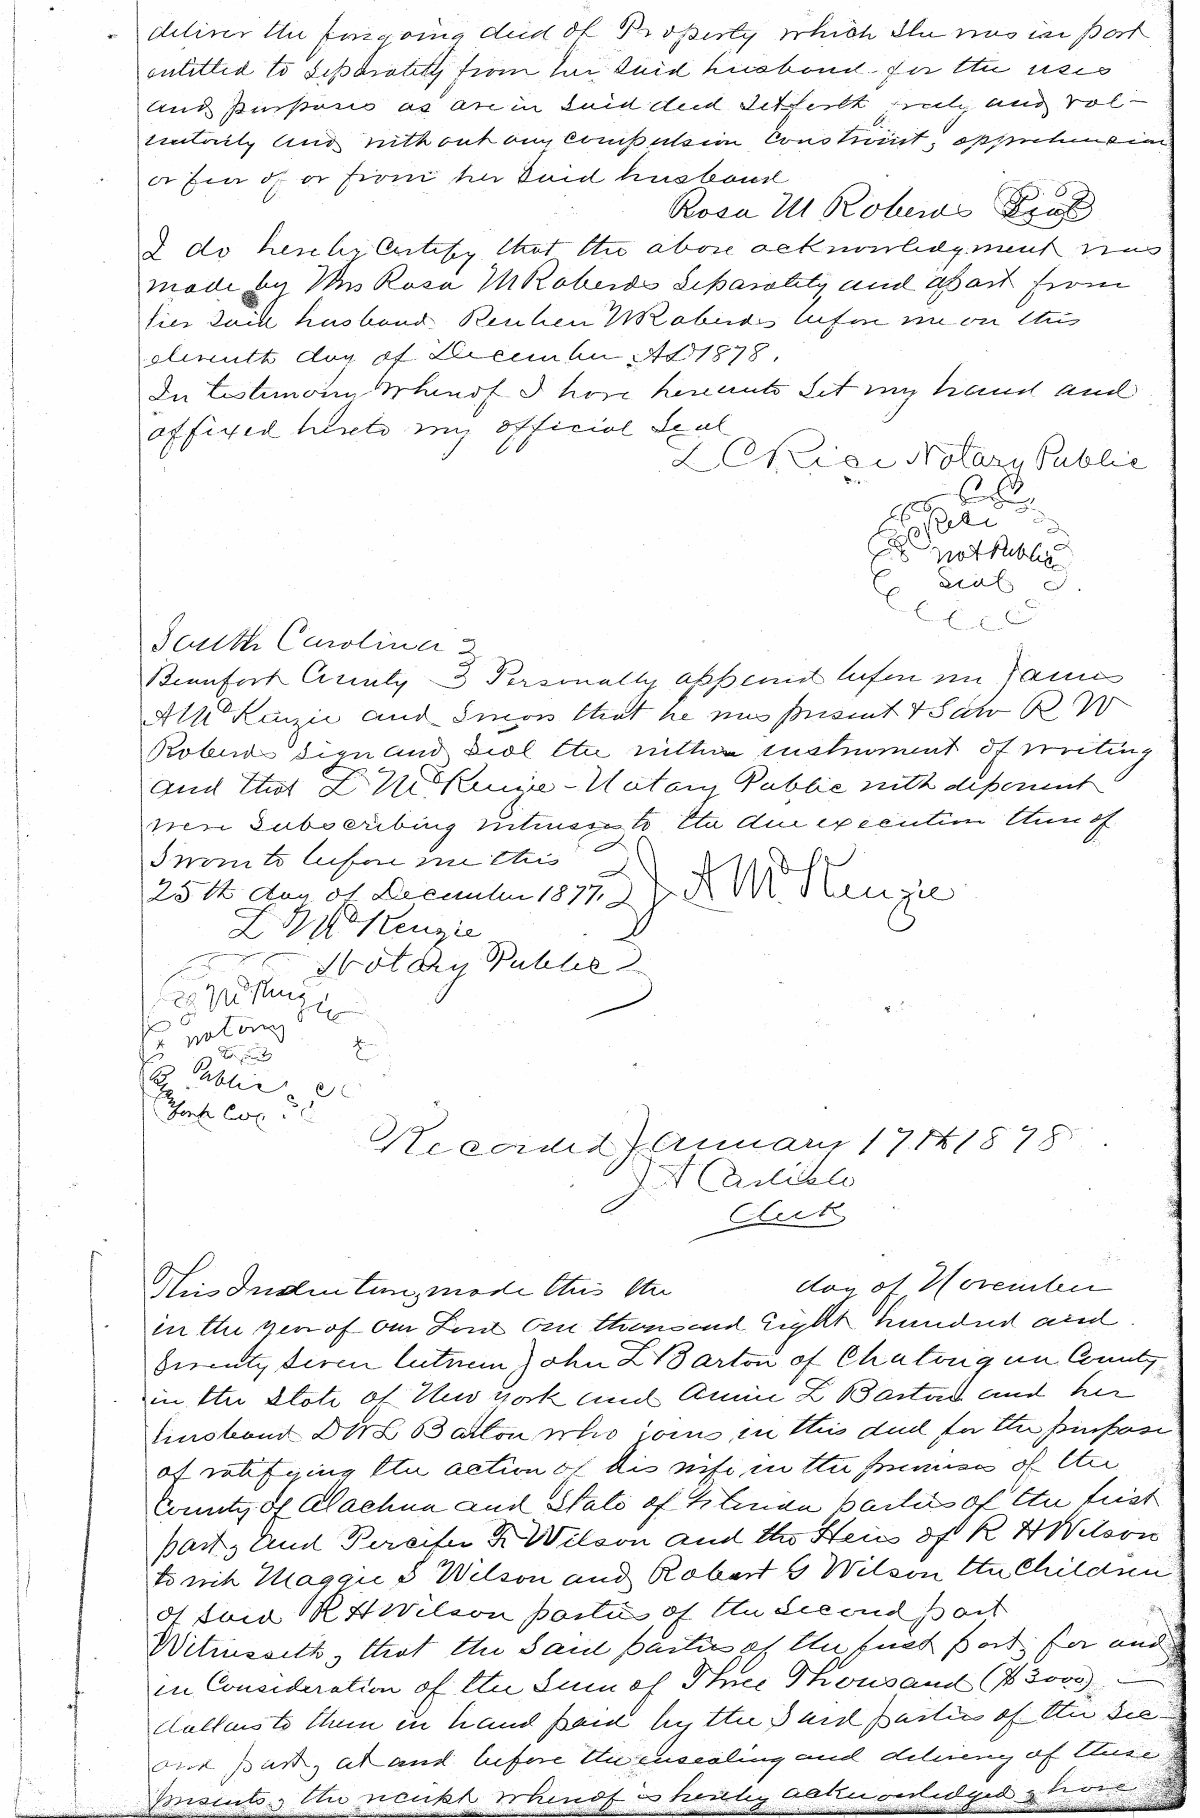 deliver the foregoing deed of Property which she was in part
entitled to Separately from her Said husband for the uses
and purposes as are in Said deed Setforth freely and vol-
untarily and without any compulsion Constraint, apprehension
or fear of or from her Said husband
Rosa M Roberds Seal
I do hereby Certify that the above acknowledgment was
made by Mrs Rosa M Roberds Separately and apart from
her Said husband Reuben W Roberds before me on this
eleventh day of December AD 1878.
In testimony Whereof I have hereunto Set my hand and
affixed hereto my official Seal
L C Rice Notary Public
Rice
Not Public
Seal
South Carolina
Beaufort County Personally appeared before me James
A McKenzie and Swors that he was present & Saw R W
Roberds Sign and Seal the within instrument of writing
and that L McKenzie - Notary Public with deponent
were Subscribing witnesses to the due execution thereof
Sworn to before me this
25th day of December 1877. J A McKenzie
L McKenzie
Notary Public
McKenzie
notary
Public
Recorded January 17th 1878
J A Carlisle
Clerk
This Indenture, made this the day of November
in the year of our Lord One thousand Eight hundred and
Seventy Seven between John L Barton of Chatauqua County
in the State of New York and Annie L Barton and her
husband D W L Barton who joins in this deed for the purpose
of ratifying the action of his wife in the premises of the
County of Alachua and State of Florida parties of the first
part, and Percifer F Wilson and the Heirs of R H Wilson
to wit Maggie S Wilson and Robert G Wilson the Children
of Said R H Wilson parties of the Second part
Witnesseth, that the Said parties of the first part, for and
in Consideration of the Sum of Three Thousand ($3000) —
dollars to them in hand paid by the Said parties of the Sec-
ond part, at and before the ensealing and delivery of these
presents, the receipt whereof is hereby acknowledged, have